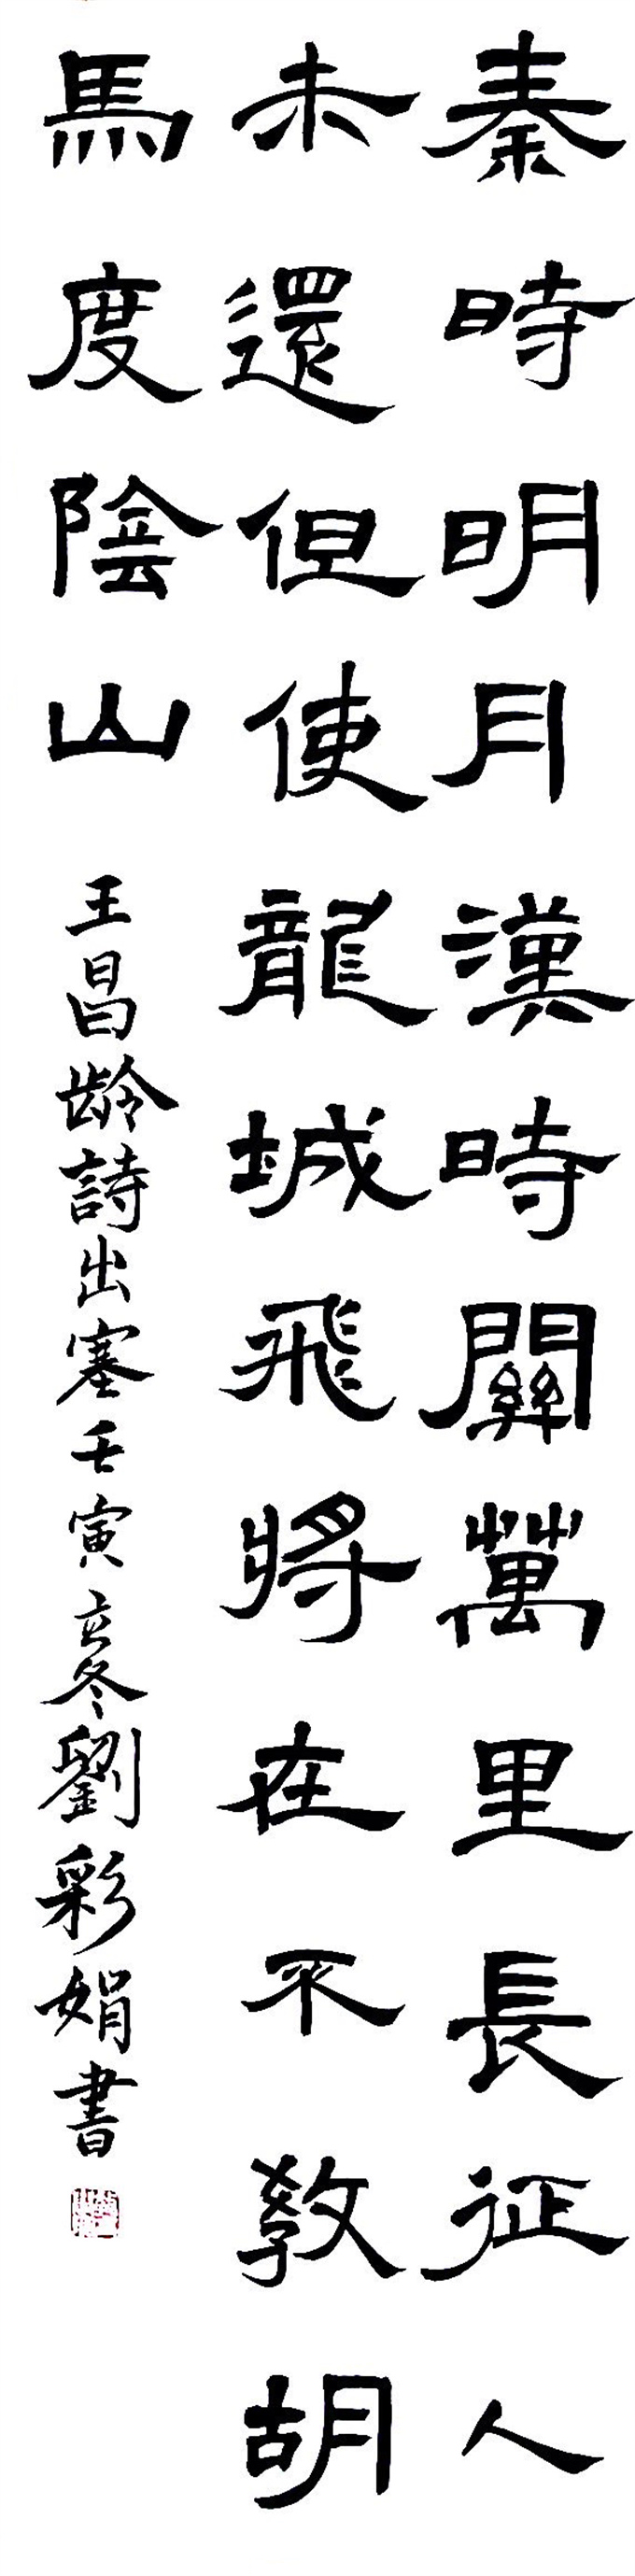 秦時明月漢時關萬里長征人
未還但使龍城飛將在不敎胡
馬度陰山
王昌齡詩出塞壬寅立冬劉彩娟書